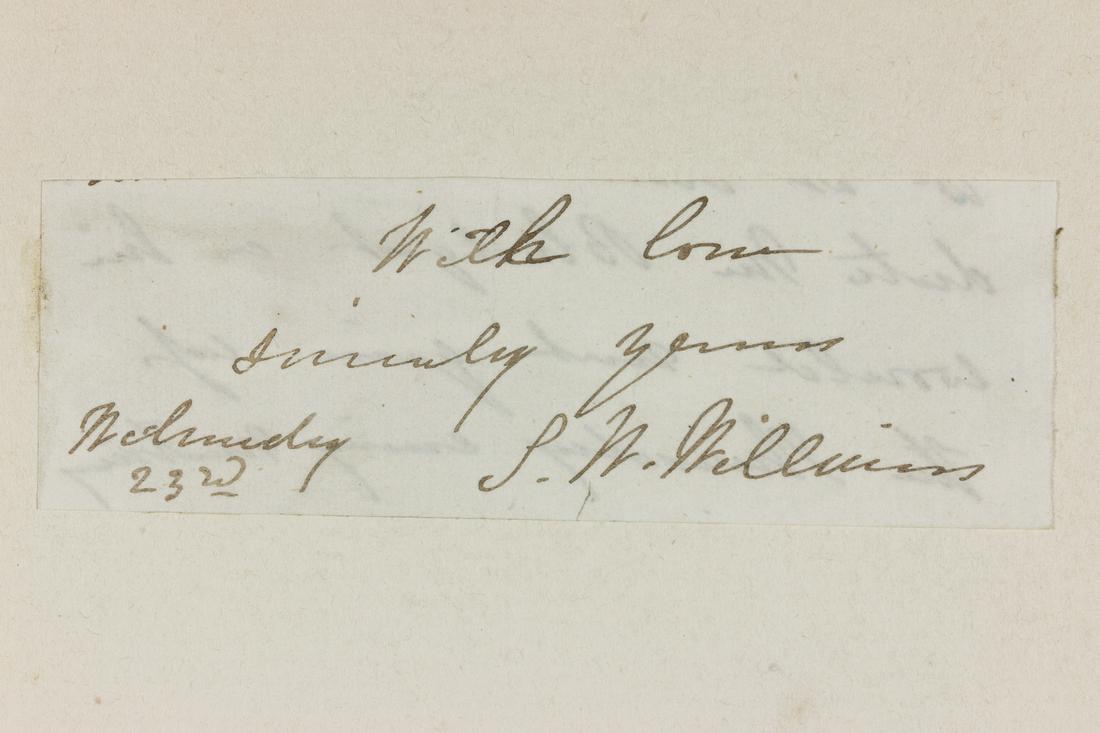 With love
sincerely yours
Wednesday
23rd
S. W. Williams